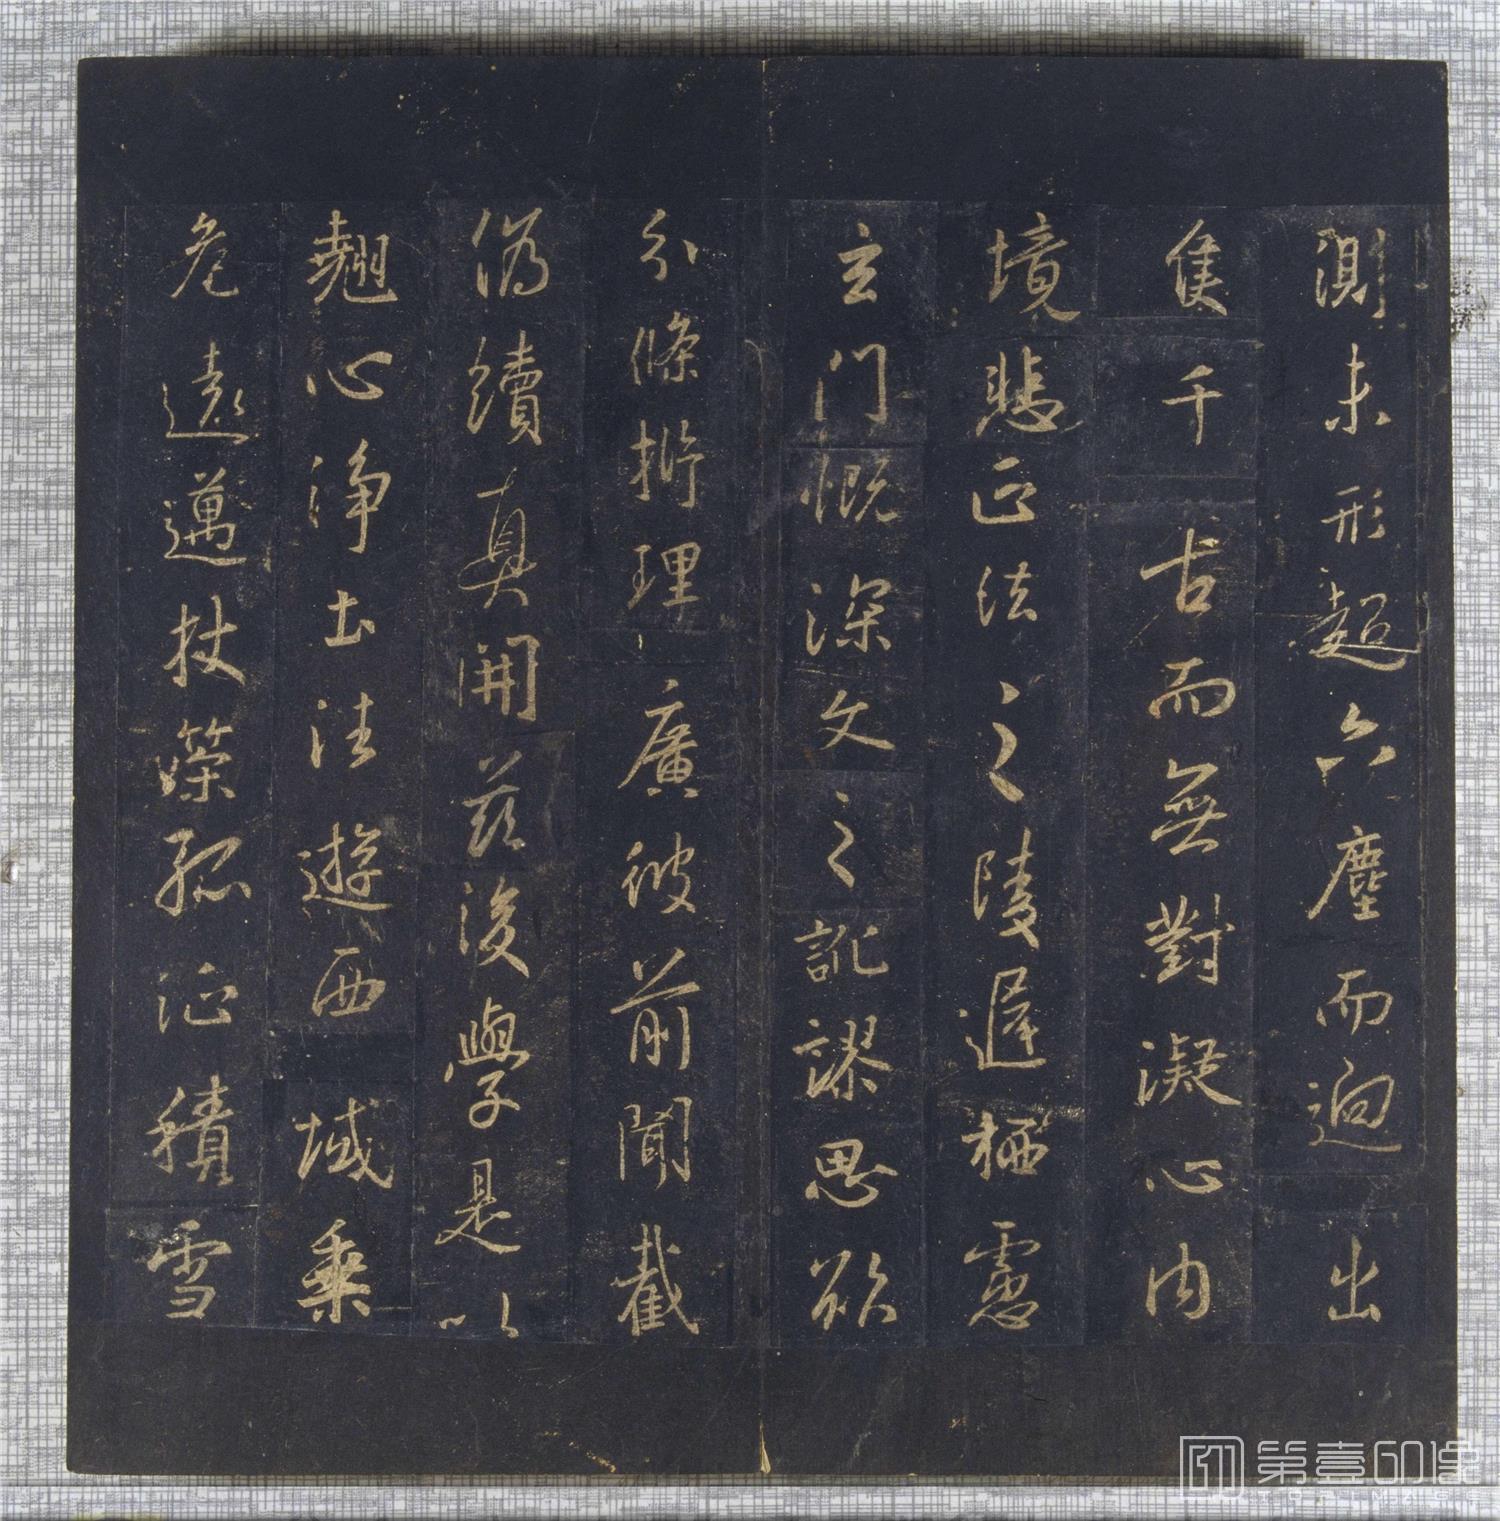 測未形超六塵而迥出
隻千古而無對凝心內
境悲正法之陵遲栖慮
玄門慨深文之訛謬思欲
分條析理廣彼前聞截
偽續真開茲後學是以
翹心淨土法遊西域乘
危遠邁杖策孤征積雪
第壹图像
TOPIMAGE